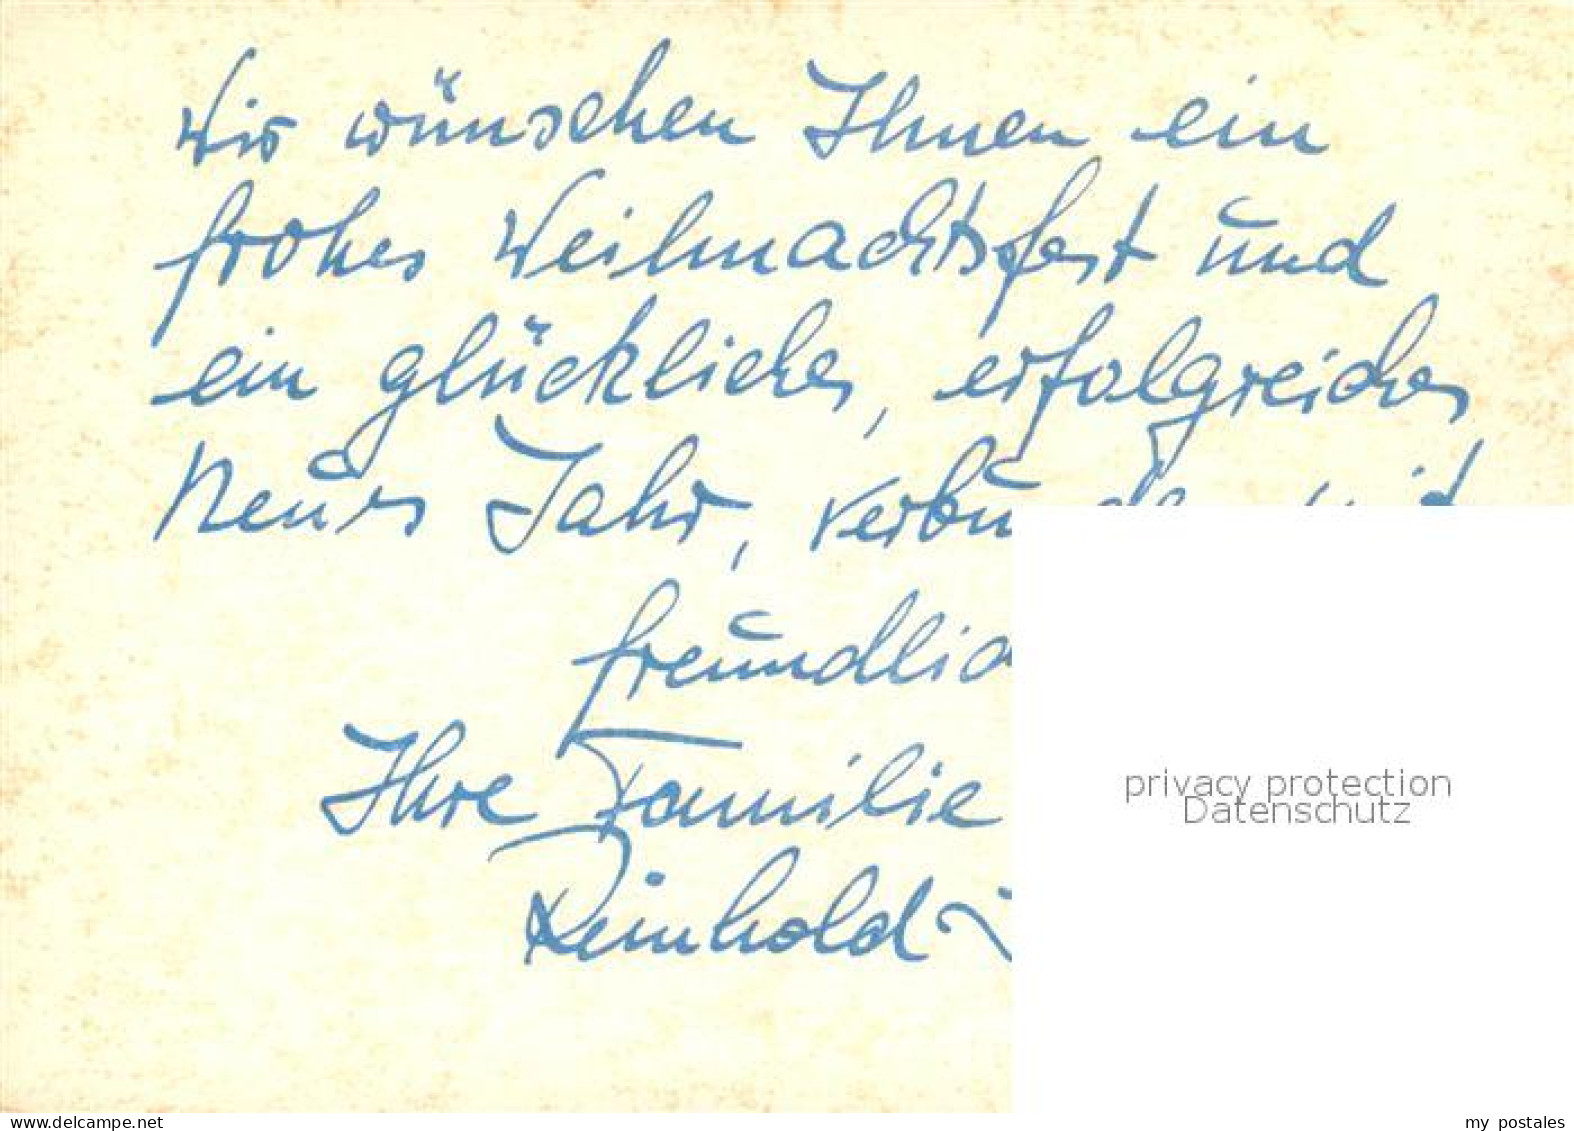 Wir wünschen Ihnen ein
frohes Weihnachtsfest und
ein glückliches, erfolgreiches
Neues Jahr, verbunden mit
freundlic
Ihre Familie
Reinhold
privacy protection
Datenschutz
www.delcampe.net
my_postales